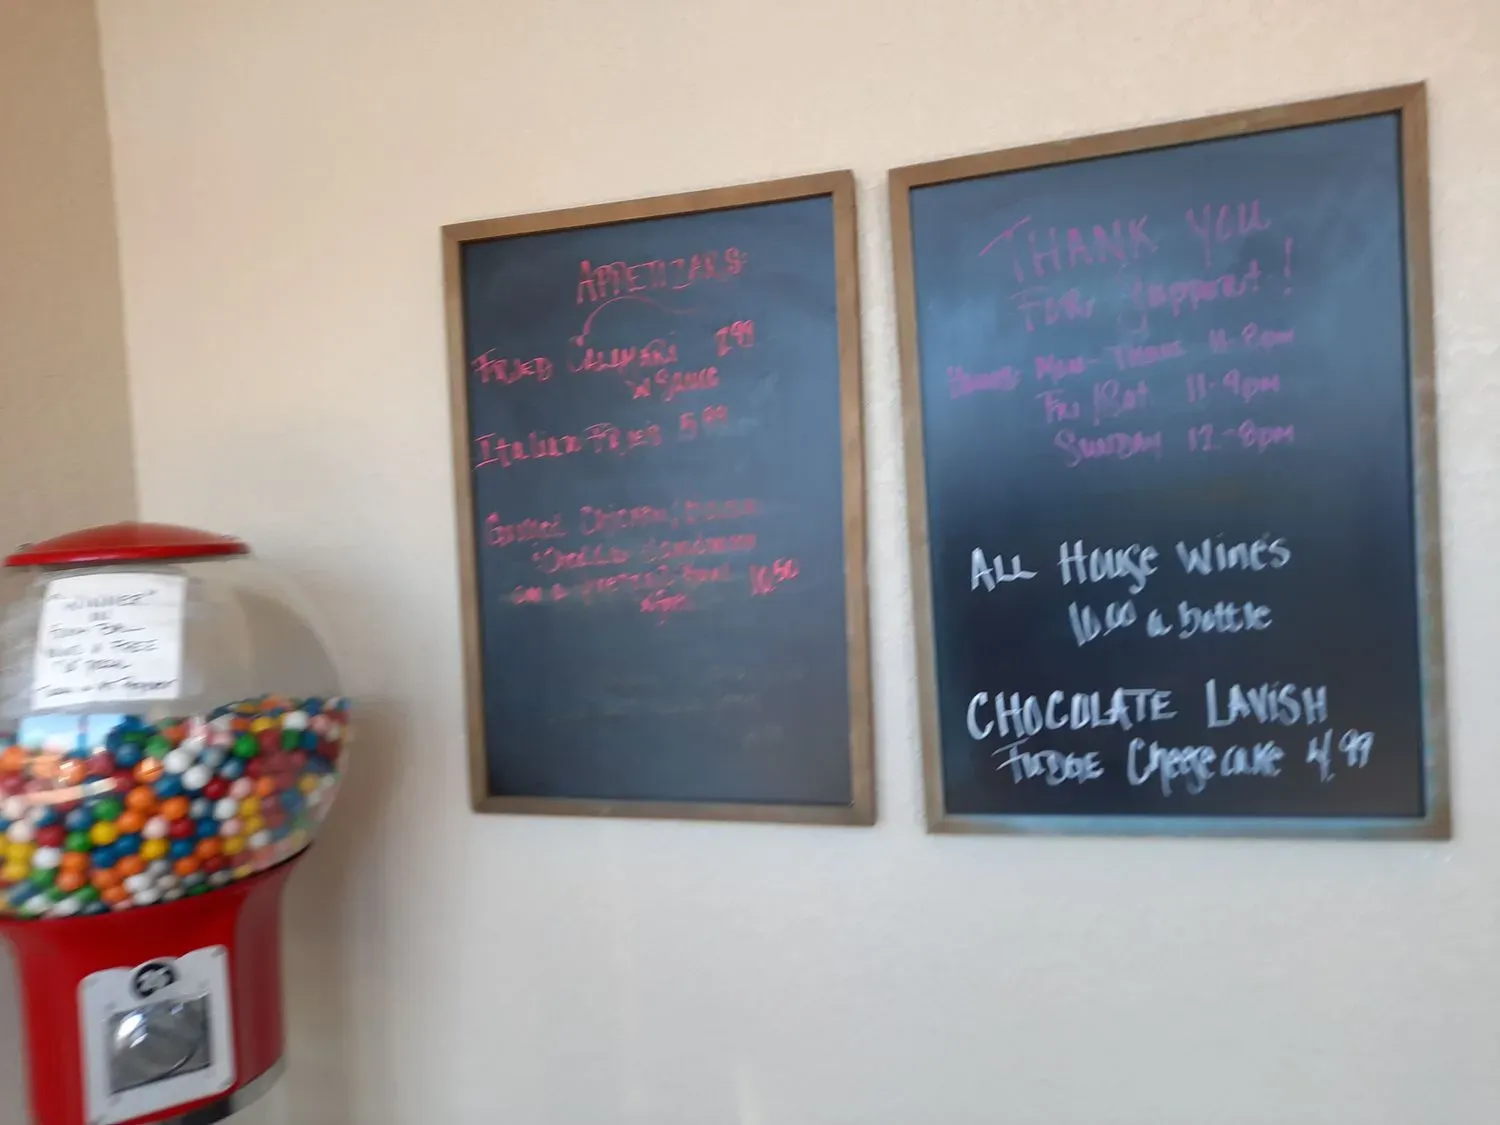 APPETIZARS:
FRIED CALAMARI 7.99
W SAUCE
Italian FRIES 5.99
Grilled Chicken/Bacon
Cheddar Sandwich
on a pretzel Bun 10.50
w/fries
THANK YOU
For Support!
HOURS: MON-THURS 11-8pm
FRI/Sat 11-9pm
SUNDAY 12-8pm
ALL House Wines
10.00 a bottle
CHOCOLATE LAVISH
FUDGE Cheesecake 4.99
"WINNER"
A FREE
25